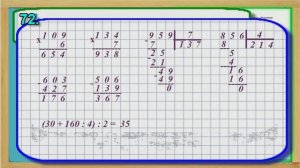 72.
x 1 0 9
6
6 5 4
x 1 3 4
7
9 3 8
- 9 5 9 | 7
7 1 3 7
- 2 5
2 1
- 4 9
4 9
0
- 8 5 6 | 4
8 2 1 4
- 5
4
- 1 6
1 6
0
- 6 0 3
4 2 7
1 7 6
- 5 0 6
1 3 9
3 6 7
(30 + 160 : 4) : 2 = 35